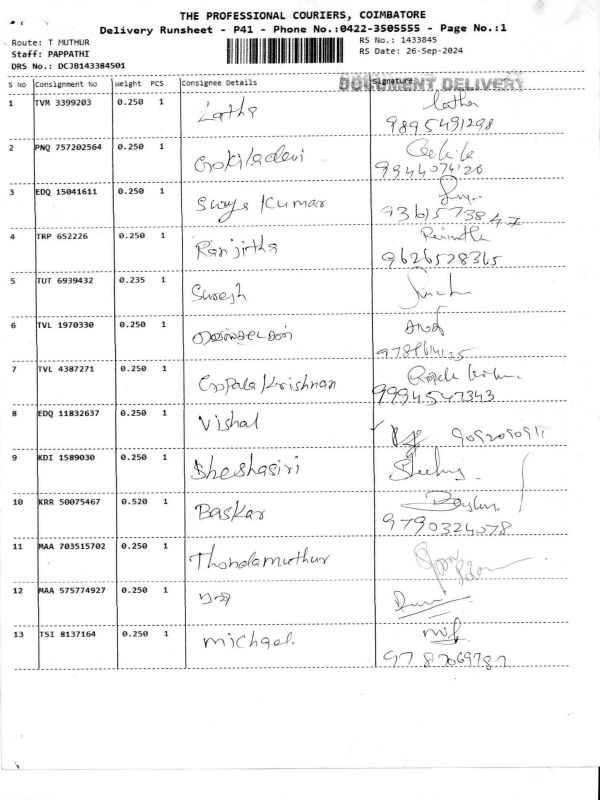 THE PROFESSIONAL COURIERS, COIMBATORE
Delivery Runsheet - P41 - Phone No.:0422-3505555 - Page No.:1
Route: T MUTHUR RS No.: 1433845
Staff: PAPPATHI RS Date: 26-Sep-2024
DRS No.: DCJB143384501
DOCUMENT DELIVERY
S No Consignment No Weight PCS Consignee Details Signature
1 TVM 3399203 0.250 1 Latha Latha
9895491298
2 PNQ 757202564 0.250 1 Gokiladevi
9944074120
3 EDQ 15041611 0.250 1 Surya Kumar
9361573847
4 TRP 652226 0.250 1 Ranjitha
9626528365
5 TUT 6939432 0.235 1 Suresh
6 TVL 1970330 0.250 1
7 TVL 4387271 0.250 1 Gopala Krishnan
9994547343
8 EDQ 11832637 0.250 1 Vishal
9 KDI 1589030 0.250 1 Sheshagiri
10 KRR 50075467 0.520 1 Baskar
9790324078
11 MAA 703515702 0.250 1 Thondamuthur
12 MAA 575774927 0.250 1
13 TSI 8137164 0.250 1 michael.